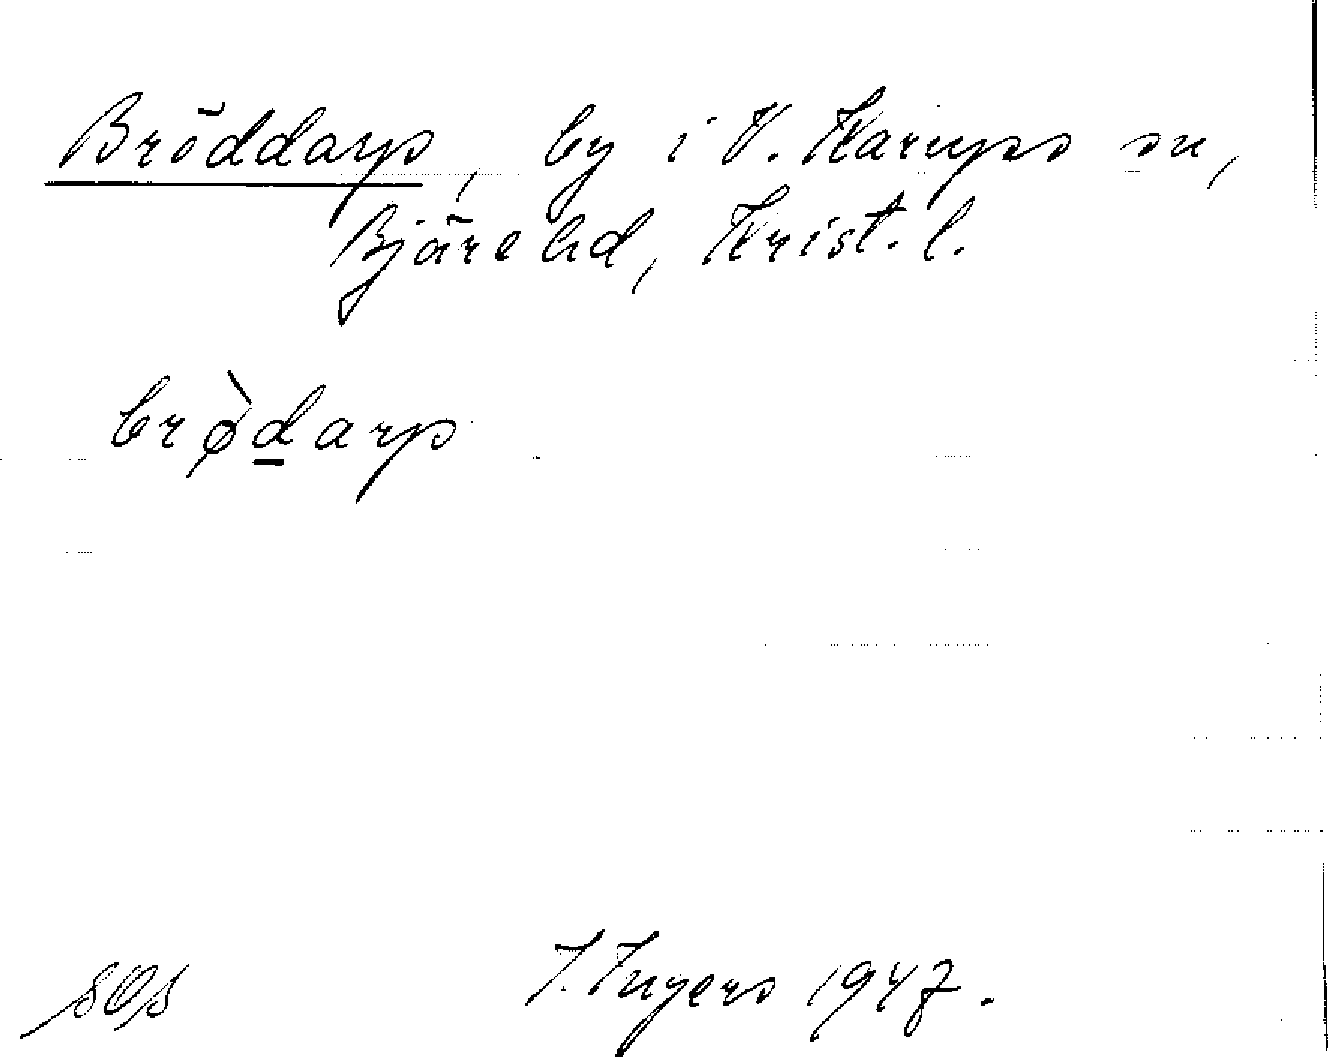 Bröddarp, by i V. Karups sn,
Bjäre hd, Krist. l.
brø̀d̲arp
I. Ingers 1947.